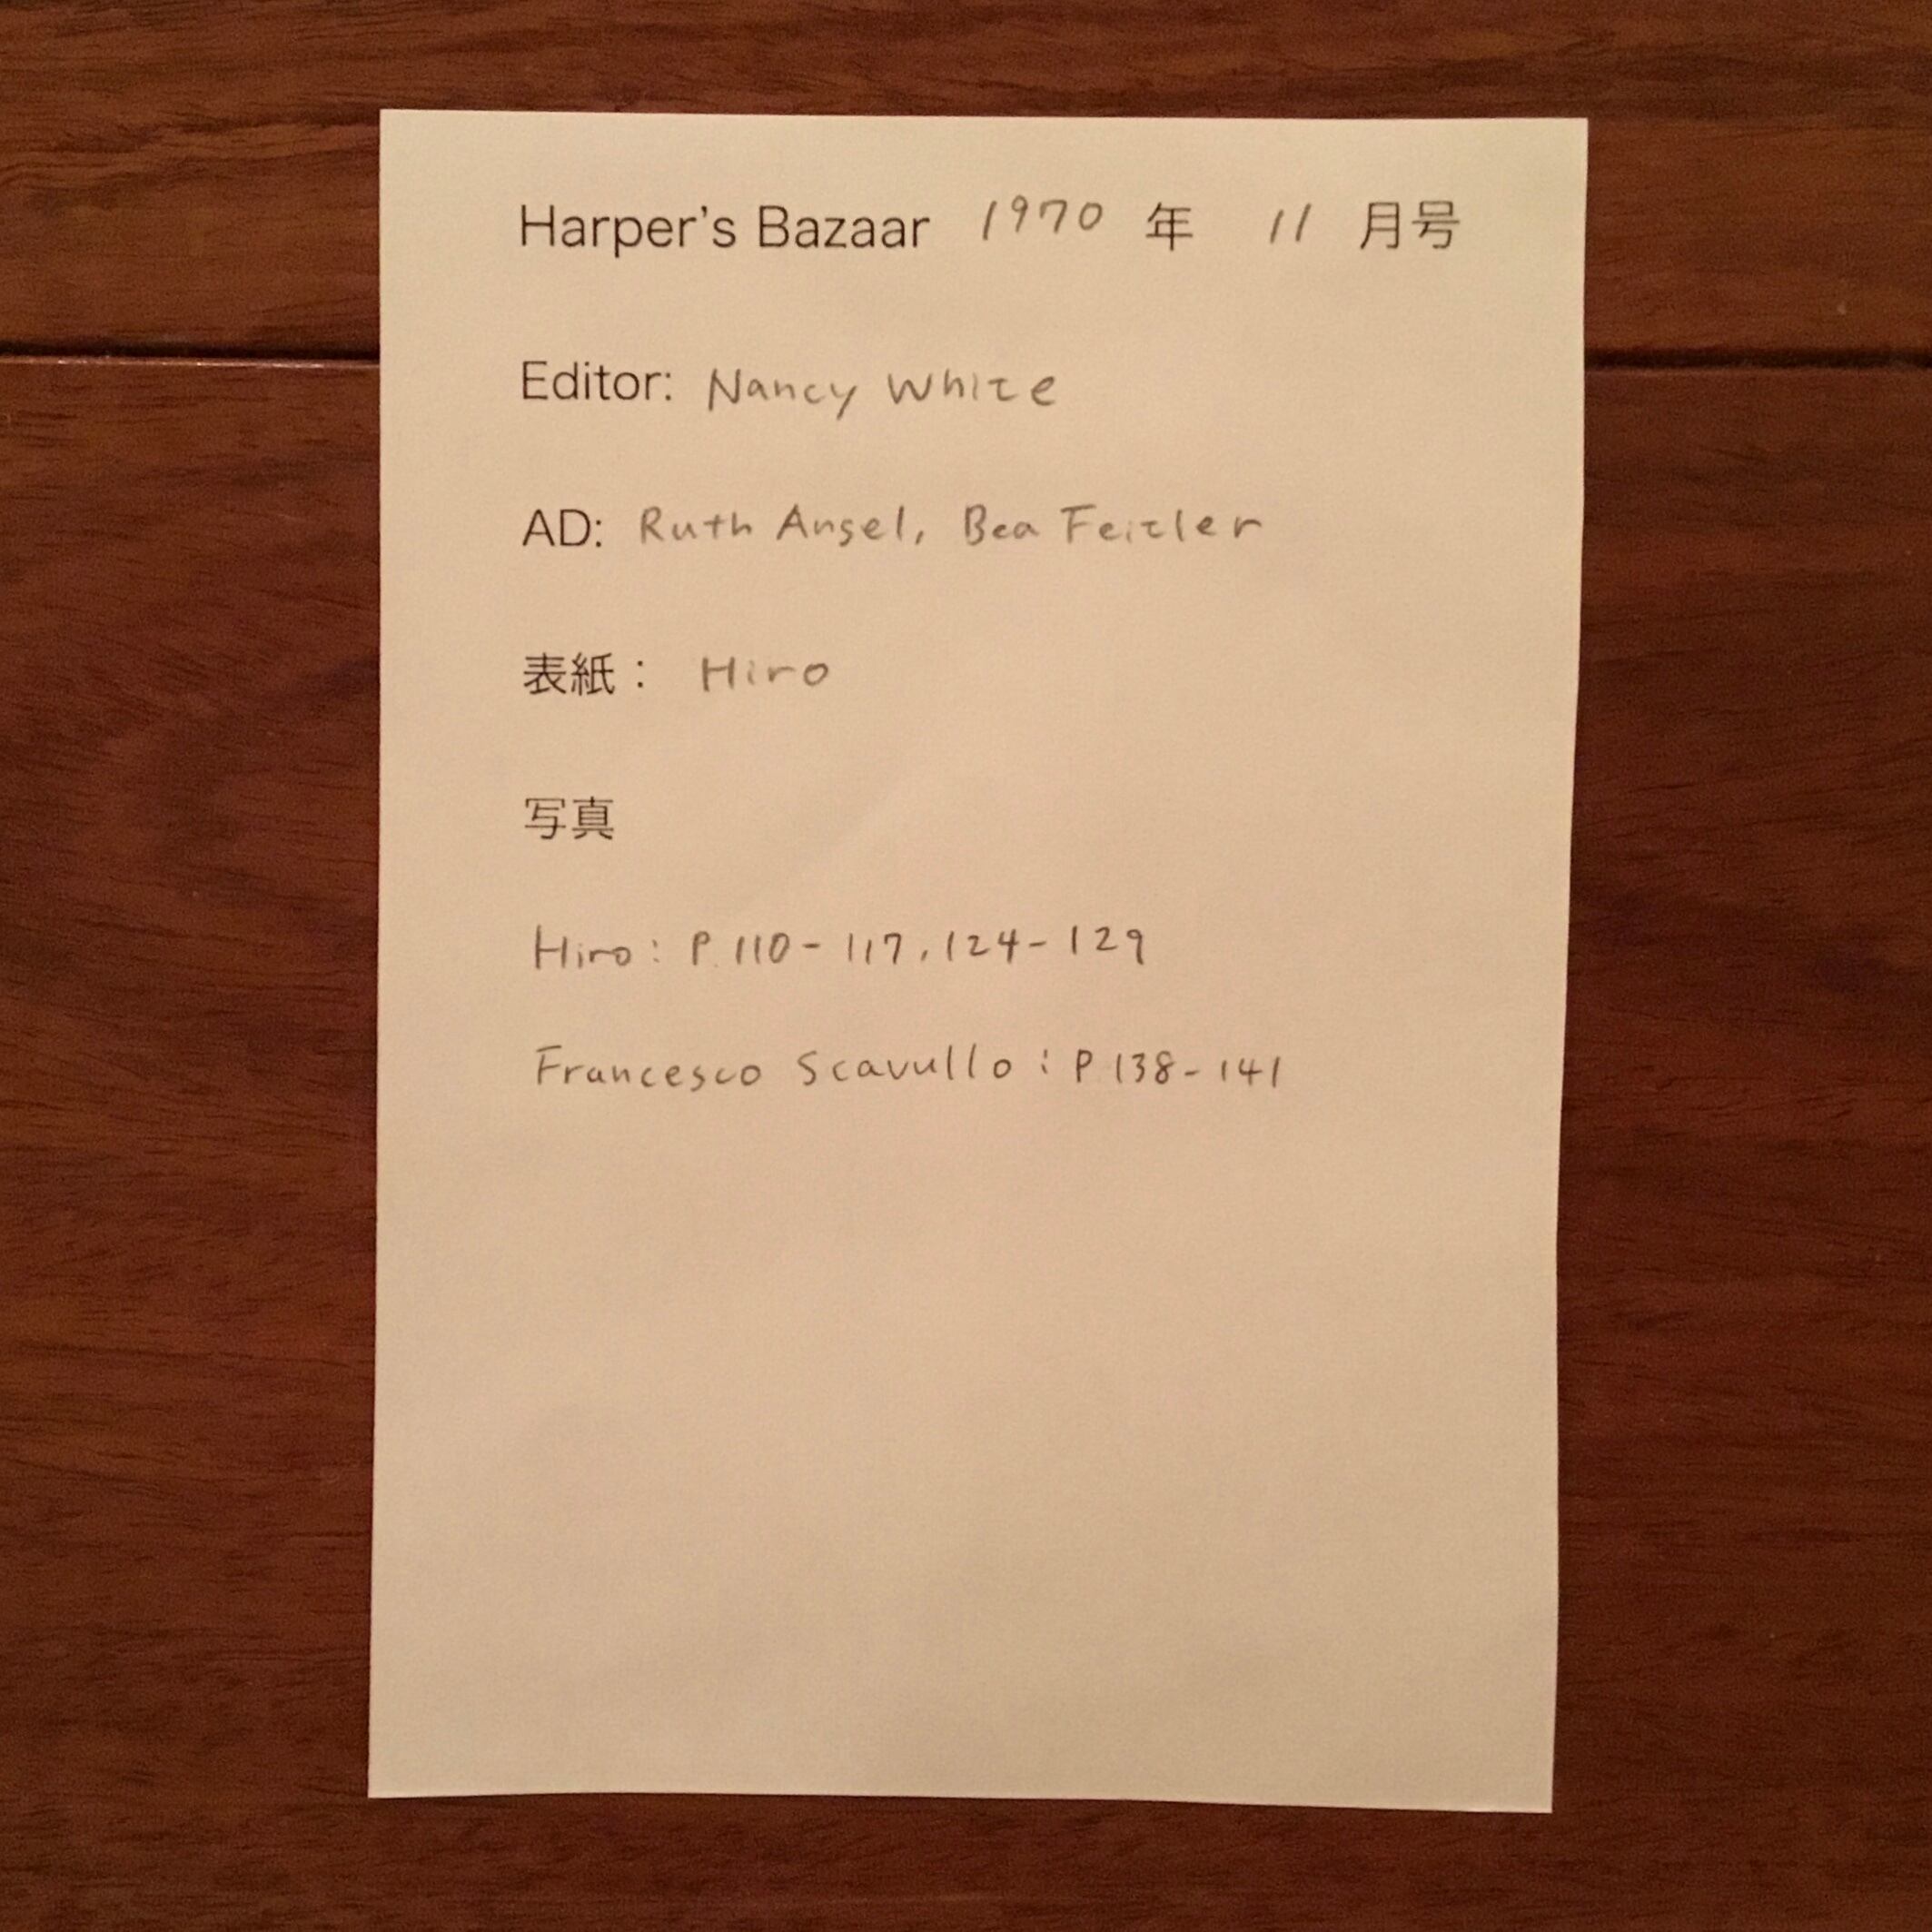 Harper's Bazaar 1970 年 11 月号
Editor: Nancy White
AD: Ruth Ansel, Bea Feitler
表紙： Hiro
写真
Hiro: P.110-117,124-129
Francesco Scavullo: P 138-141